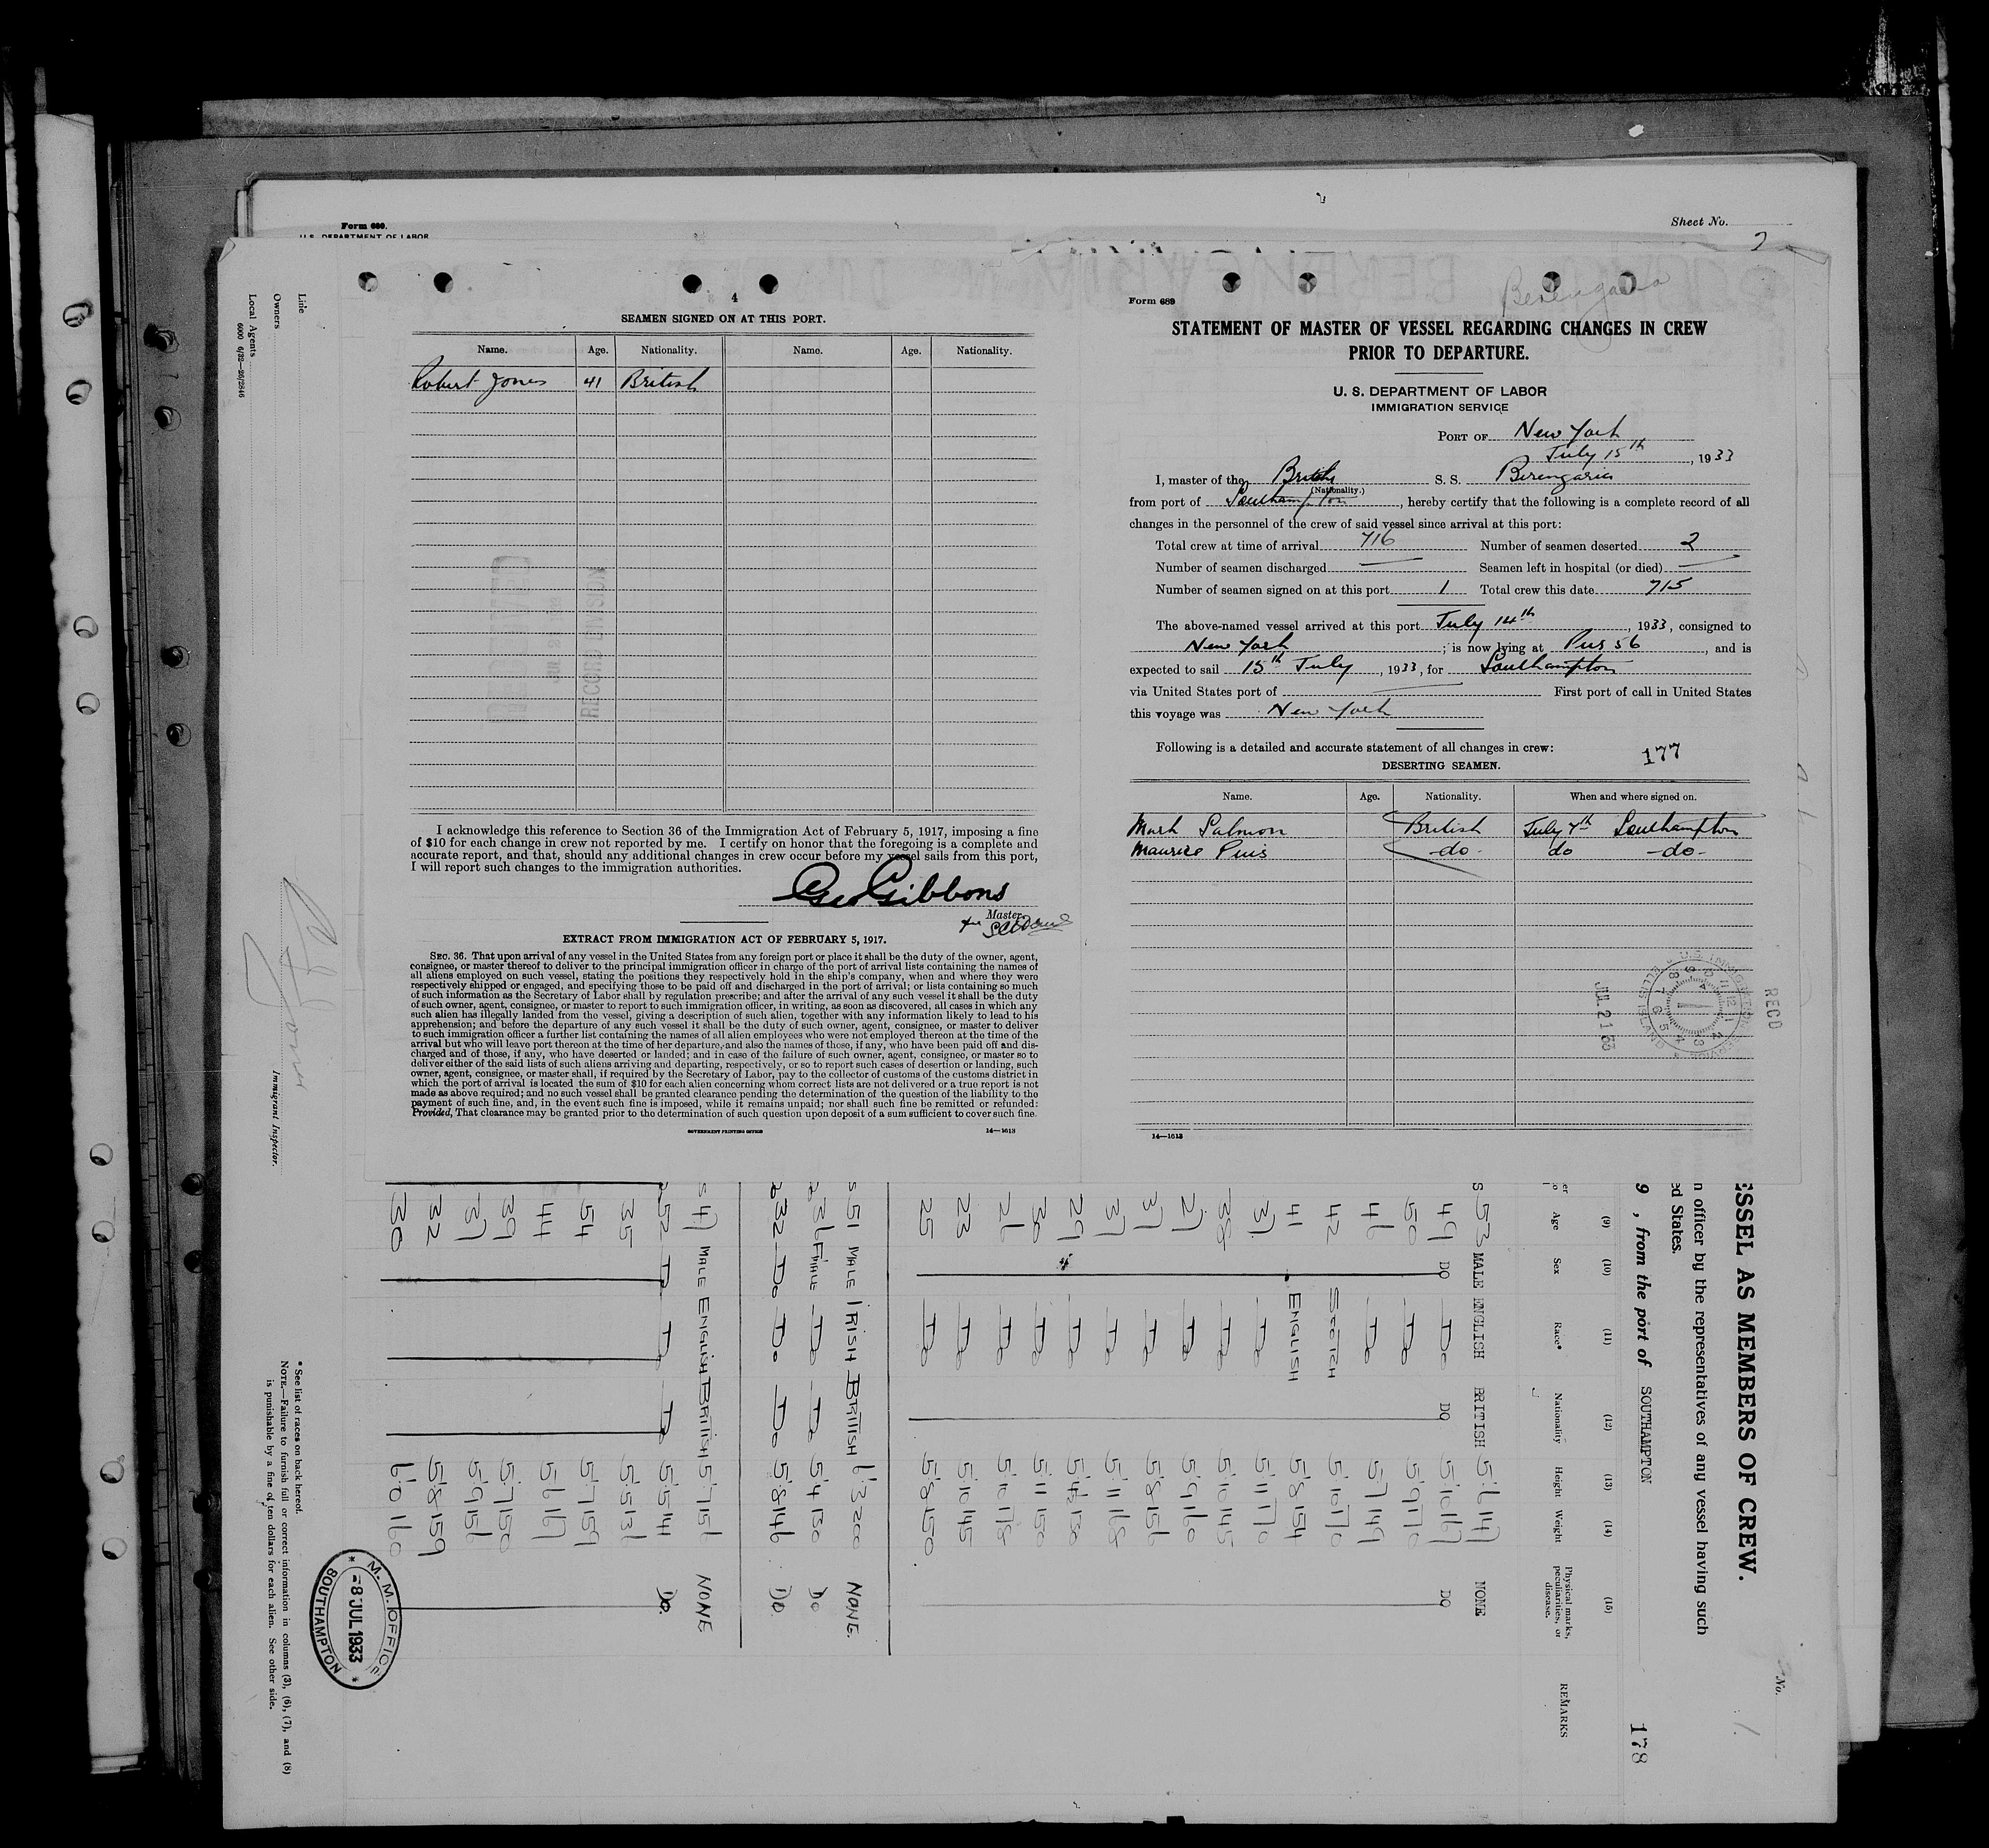 Form 689.
U. S. DEPARTMENT OF LABOR
Sheet No.
2
Line
Owners
Local Agents
6000 6/32—26/2846
Immigrant Inspector.
4
SEAMEN SIGNED ON AT THIS PORT.
Name. Age. Nationality. Name. Age. Nationality.
Robert Jones 41 British
RECEIVED
RECORD DIVISION
I acknowledge this reference to Section 36 of the Immigration Act of February 5, 1917, imposing a fine
of $10 for each change in crew not reported by me. I certify on honor that the foregoing is a complete and
accurate report, and that, should any additional changes in crew occur before my vessel sails from this port,
I will report such changes to the immigration authorities.
Geo Gibbons
Master.
EXTRACT FROM IMMIGRATION ACT OF FEBRUARY 5, 1917.
SEC. 36. That upon arrival of any vessel in the United States from any foreign port or place it shall be the duty of the owner, agent,
consignee, or master thereof to deliver to the principal immigration officer in charge of the port of arrival lists containing the names of
all aliens employed on such vessel, stating the positions they respectively hold in the ship's company, when and where they were
respectively shipped or engaged, and specifying those to be paid off and discharged in the port of arrival; or lists containing so much
of such information as the Secretary of Labor shall by regulation prescribe; and after the arrival of any such vessel it shall be the duty
of such owner, agent, consignee, or master to report to such immigration officer, in writing, as soon as discovered, all cases in which any
such alien has illegally landed from the vessel, giving a description of such alien, together with any information likely to lead to his
apprehension; and before the departure of any such vessel it shall be the duty of such owner, agent, consignee, or master to deliver
to such immigration officer a further list containing the names of all alien employees who were not employed thereon at the time of the
arrival but who will leave port thereon at the time of her departure, and also the names of those, if any, who have been paid off and dis-
charged and of those, if any, who have deserted or landed; and in case of the failure of such owner, agent, consignee, or master so to
deliver either of the said lists of such aliens arriving and departing, respectively, or so to report such cases of desertion or landing, such
owner, agent, consignee, or master shall, if required by the Secretary of Labor, pay to the collector of customs of the customs district in
which the port of arrival is located the sum of $10 for each alien concerning whom correct lists are not delivered or a true report is not
made as above required; and no such vessel shall be granted clearance pending the determination of the question of the liability to the
payment of such fine, and, in the event such fine is imposed, while it remains unpaid; nor shall such fine be remitted or refunded:
Provided, That clearance may be granted prior to the determination of such question upon deposit of a sum sufficient to cover such fine.
GOVERNMENT PRINTING OFFICE 14—1613
Berengaria
Form 689
STATEMENT OF MASTER OF VESSEL REGARDING CHANGES IN CREW
PRIOR TO DEPARTURE.
U. S. DEPARTMENT OF LABOR
IMMIGRATION SERVICE
PORT OF New York
July 15th, 1933
I, master of the British S. S. Berengaria
(Nationality.)
from port of Southampton, hereby certify that the following is a complete record of all
changes in the personnel of the crew of said vessel since arrival at this port:
Total crew at time of arrival 716 Number of seamen deserted 2
Number of seamen discharged — Seamen left in hospital (or died) —
Number of seamen signed on at this port 1 Total crew this date 715
The above-named vessel arrived at this port July 14th, 1933, consigned to
New York; is now lying at Pier 56, and is
expected to sail 15th July, 1933, for Southampton
via United States port of — First port of call in United States
this voyage was New York
Following is a detailed and accurate statement of all changes in crew:
177
DESERTING SEAMEN.
Name. Age. Nationality. When and where signed on.
Mark Salmon British July 7th Southampton
Maurice Puis do do do
14—1613
RECD
JUL 21 33
U.S. IMMIGRATION SERVICE ELLIS ISLAND
ESSEL AS MEMBERS OF CREW.
n officer by the representatives of any vessel having such
ed States.
9, from the port of SOUTHAMPTON
178
No.
(9) (10) (11) (12) (13) (14) (15)
Age Sex Race* Nationality Height Weight Physical marks, peculiarities, or disease. REMARKS
53 MALE ENGLISH BRITISH 5'6 147 NONE
49 DO Do DO 5'10 167 DO
50 Do 5'9 170
46 Do 5'7 149
42 SCOTCH 5'10 170
41 ENGLISH 5'8 154
37 Do 5'11 170
38 Do 5'10 145
27 Do 5'9 160
37 Do 5'8 156
37 Do 5'11 168
29 Do 5'4½ 130
38 Do 5'11 150
26 Do 5'10 178
23 Do 5'10 145
25 Do 5'8 150
51 MALE IRISH BRITISH 6'3 200 NONE.
36 F.MALE Do Do 5'4 130 Do
32 Do Do Do 5'8 146 Do.
47 MALE ENGLISH BRITISH 5'7 156 NONE
52 Do Do Do 5'5 141 Do.
35 5'5 136
54 5'7 159
44 5'6 167
39 5'7 150
37 5'9 156
32 5'8 159
30 6'0 160
* See list of races on back hereof.
NOTE.—Failure to furnish full or correct information in columns (3), (6), (7), and (8)
is punishable by a fine of ten dollars for each alien. See other side.
M. M. OFFICE
-8 JUL 1933
SOUTHAMPTON